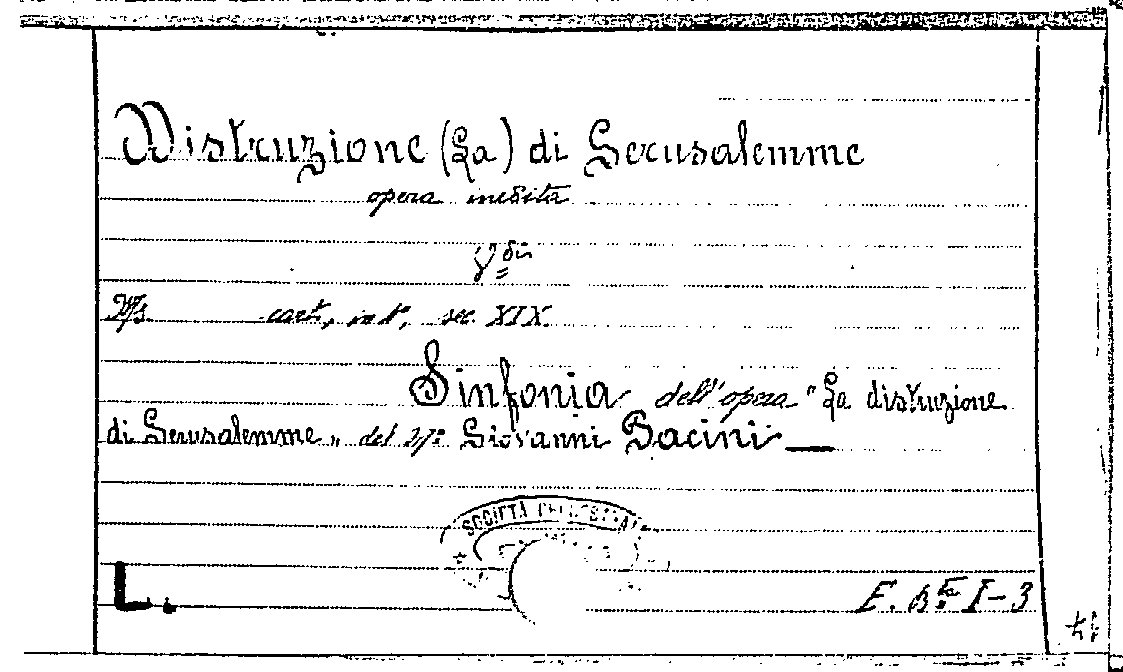 Distruzione (La) di Gerusalemme
opera inedita
Vdi
Ms. cart., in 4°, sec. XIX.
Sinfonia dell'opera "La distruzione
di Gerusalemme" del M° Giovanni Pacini —
SOCIETÀ DEL
L.
F. Bta I-3